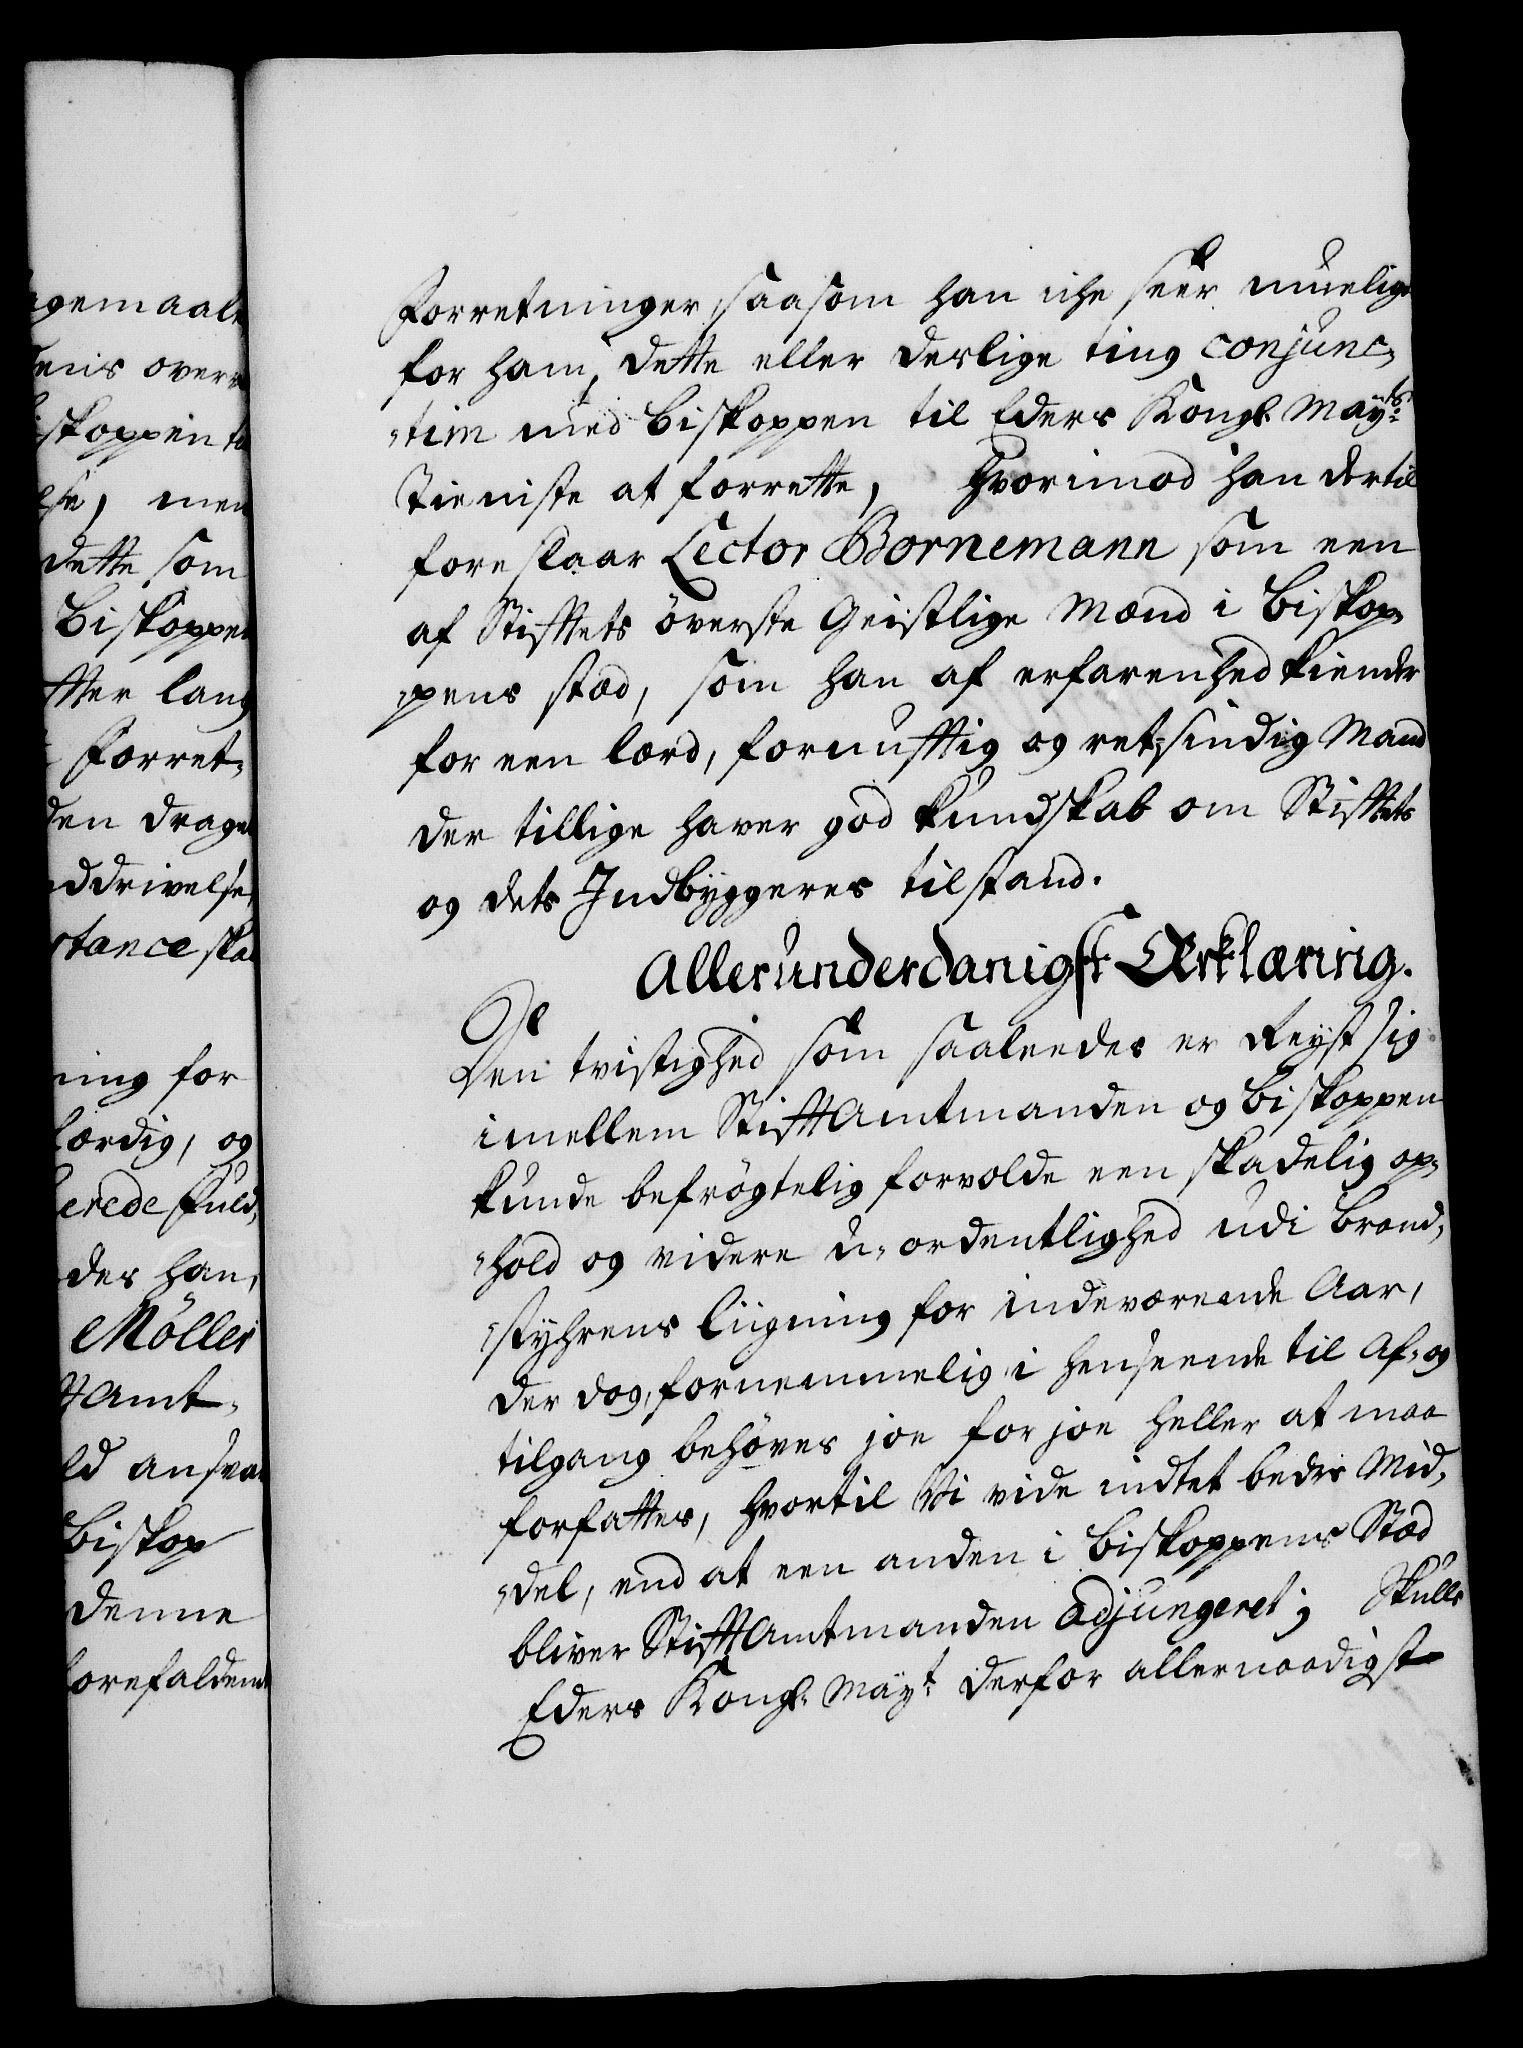 agemaale
ens over
iskoppen to
lse, men
dette som
Biskoppen
tter lang
Forret-
den drage
ddrivelse,
stance ska
ning for
færdig, og
erede fuld,
des han,
Möller
Amt-
ld ansvar
Biskop
denne
forefaldene
Forretninger, saasom han iche seer muelige
for ham, dette eller deslige ting conjunc-
-tim med Biskoppen til Eders Kongl. Mayts.
Tieniste at forrette, hvorimod han dertil
foreslaar Lector Bornemann som een
af Stifftets överste Geistlige Mænd i Biskop-
-pens stæd, som han af erfarenhed kiender
for een lærd, fornufftig og retsindig Mand
der tillige haver god kundskab om Stifftets
og dets Indbyggeres tilstand.
Allerunderdanigst Erklæring.
Den tvistighed som saaleedes er Reyst sig
imellem StifftAmtmanden og Biskoppen
kunde befrögtelig forvolde een skadelig op-
-hold og videre u-ordentlighed udi Brand-
-styhrens liigning for indeværende Aar,
der dog, fornemmelig i henseende til Af- og
tilgang behöves joe for joe heller at maa
forfattes, hvortil Vi vide indtet bedre Mid-
-del, end at een anden i Biskoppens Stæd
bliver StifftAmtmanden adjungeret; Skulle
Eders Kongl. Mayt. derfor allernaadigst